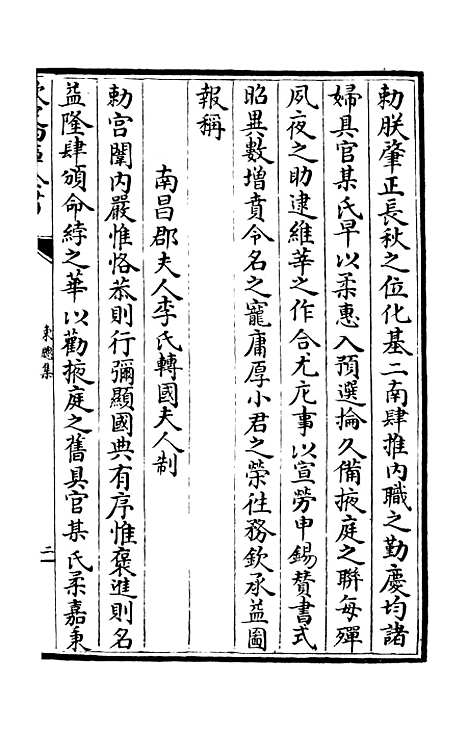 勅朕肇正長秋之位化基二南肆推内職之勤慶均諸
婦具官某氏早以柔惠入預選掄久備掖庭之聨每殫
夙夜之助逮維莘之作合尤庀事以宣勞申錫賛書式
昭異數增賁令名之寵庸厚小君之榮徃務欽承益圖
報稱
南昌郡夫人李氏轉國夫人制
勅宫闈内嚴惟恪恭則行彌顯國典有序惟褒進則名
益隆肆頒命綍之華以勸掖庭之舊具官某氏柔嘉秉
東牕集
二